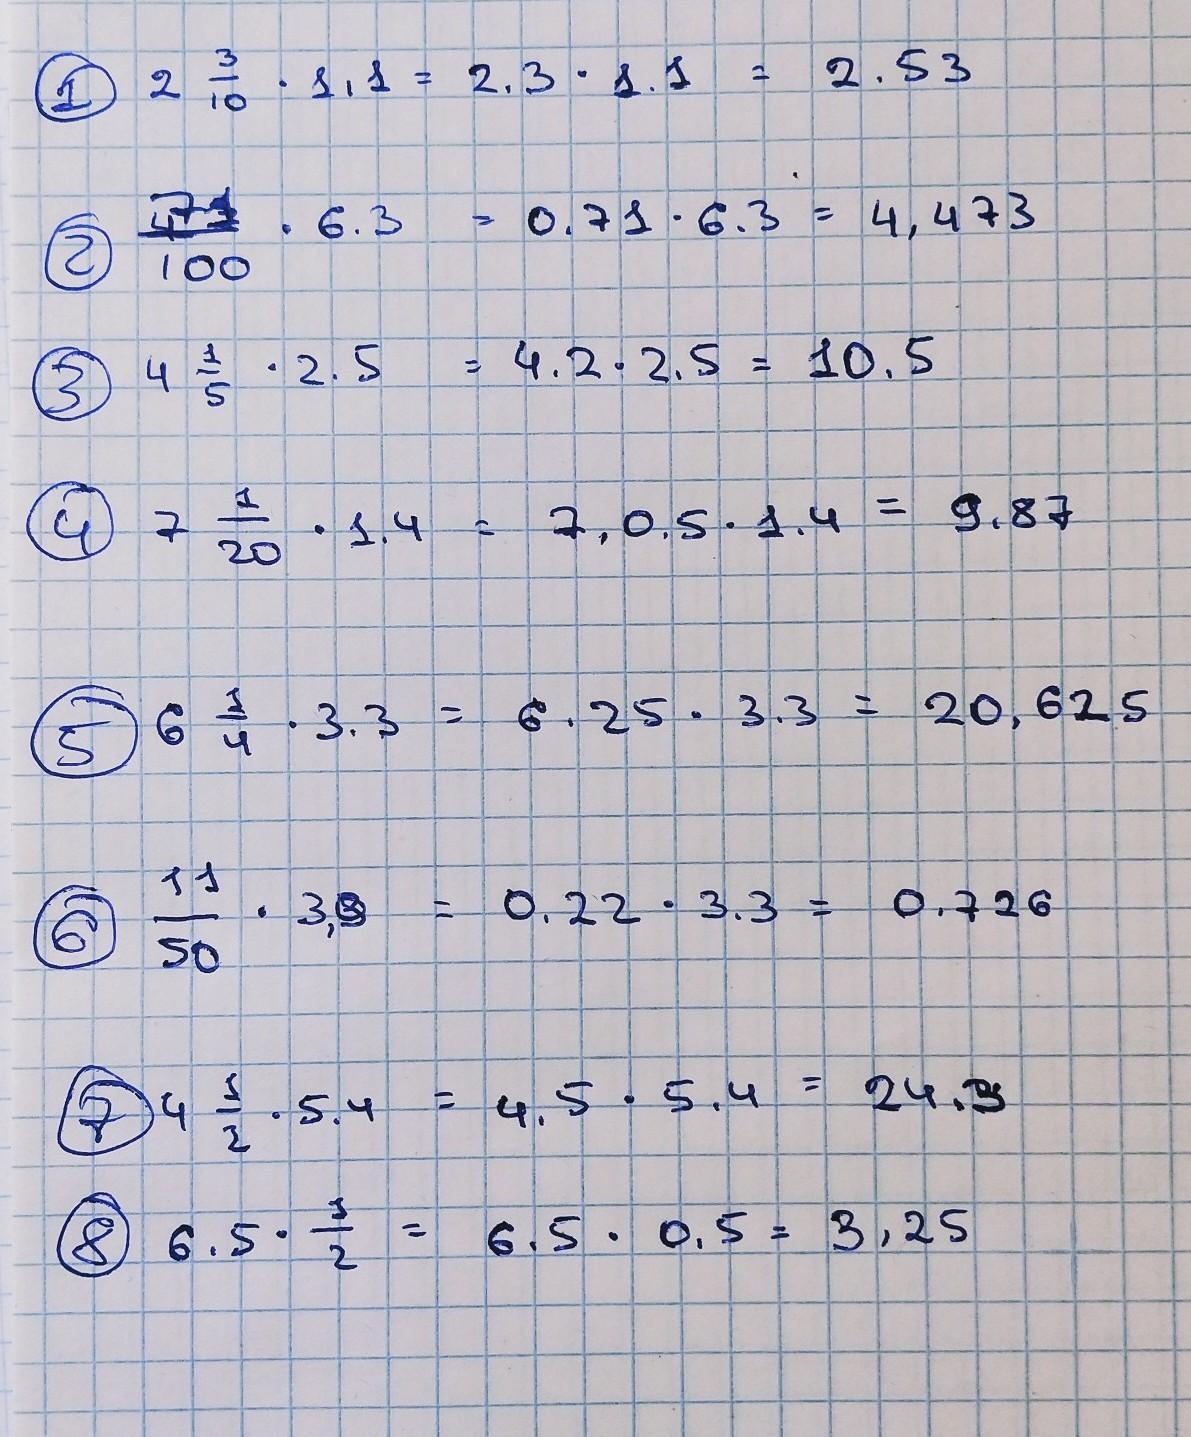 1 2 3/10 · 1,1 = 2.3 · 1.1 = 2.53
2 71/100 · 6.3 = 0.71 · 6.3 = 4,473
3 4 1/5 · 2.5 = 4.2 · 2.5 = 10.5
4 7 1/20 · 1.4 = 7,0.5 · 1.4 = 9.87
5 6 1/4 · 3.3 = 6.25 · 3.3 = 20,625
6 11/50 · 3,3 = 0.22 · 3.3 = 0.726
7 4 1/2 · 5.4 = 4.5 · 5.4 = 24.3
8 6.5 · 1/2 = 6.5 · 0.5 = 3,25